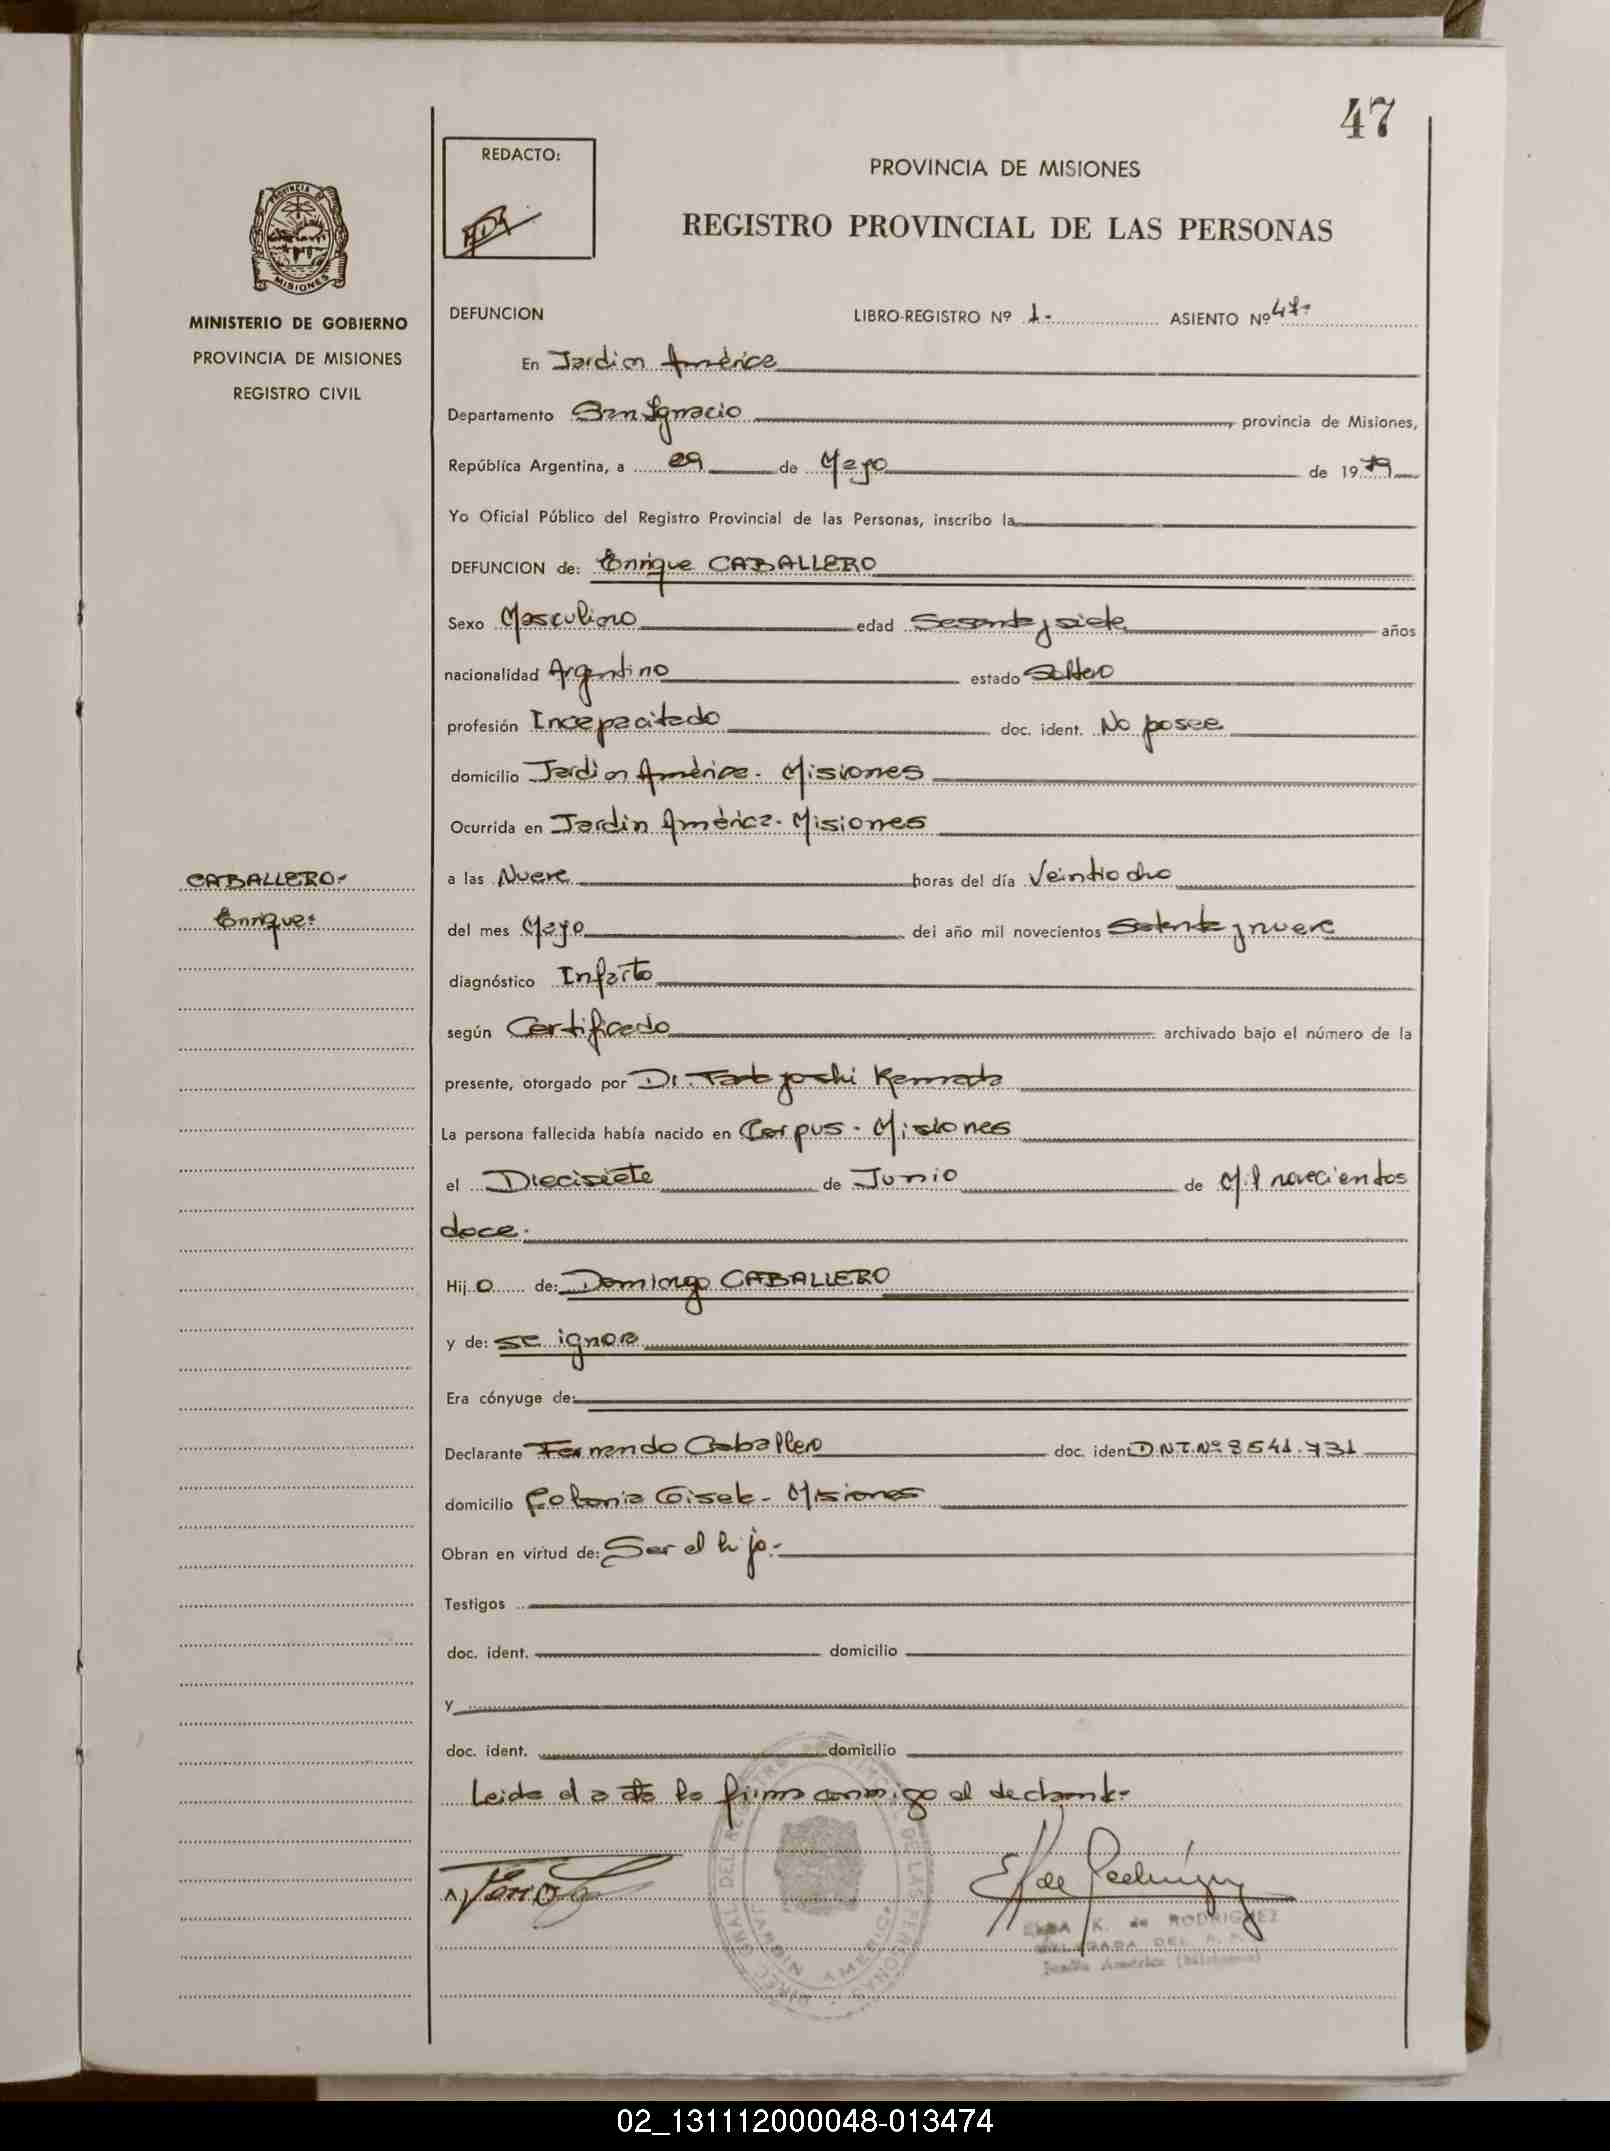 47
REDACTO:
PROVINCIA DE MISIONES
REGISTRO PROVINCIAL DE LAS PERSONAS
PROVINCIA DE
MISIONES
MINISTERIO DE GOBIERNO
PROVINCIA DE MISIONES
REGISTRO CIVIL
DEFUNCION LIBRO-REGISTRO Nº 1- ASIENTO Nº 47-
En Jardin América
Departamento San Ignacio, provincia de Misiones,
República Argentina, a 29 de Mayo de 1979
Yo Oficial Público del Registro Provincial de las Personas, inscribo la
DEFUNCION de: Enrique CABALLERO
Sexo Masculino edad Sesenta y siete años
nacionalidad Argentino estado Soltero
profesión Incapacitado doc. ident. No posee
domicilio Jardin América. Misiones
Ocurrida en Jardin América. Misiones
CABALLERO-
Enrique:
a las Nueve horas del día Veintiocho
del mes Mayo del año mil novecientos Setenta y nueve
diagnóstico Infarto
según Certificado archivado bajo el número de la
presente, otorgado por Dr.
La persona fallecida había nacido en Corpus - Misiones
el Diecisiete de Junio de Mil novecientos
doce.
Hijo de: Domingo CABALLERO
y de: se ignora
Era cónyuge de:
Declarante Fernando Caballero doc. ident D.N.I.Nº 8541.731
domicilio Colonia Gisela - Misiones
Obran en virtud de: Ser el hijo.-
Testigos
doc. ident. domicilio
y
doc. ident. domicilio
Leida el acta la firma conmigo el declarante-
E K de Rodríguez
ELBA K. de RODRIGUEZ
DELEGADA DEL R.
Jardín América (Misiones)
DIREC. GRAL. DEL REGISTRO PROVINCIAL DE LAS PERSONAS
JARDIN AMERICA
02_131112000048-013474